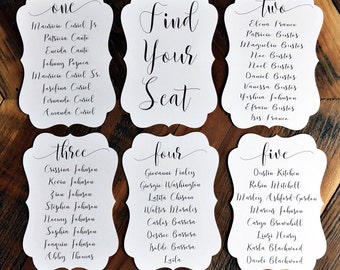 one
Mauricio Curiel Jr.
Patricia Cantu
Eneida Cantu
Johnny Popoca
Mauricio Curiel Sr.
Josefina Curiel
Fernando Curiel
Amanda Curiel
Find
Your
Seat
two
Elena Franco
Patricio Bustos
Magdalin Bustos
Noe Bustos
Noel Bustos
Daniel Bustos
Vanessa Bustos
Yoshina Johnson
Efrain Bustos
Iris Franco
three
Crissina Johnson
Kevin Johnson
Erica Johnson
Stephen Johnson
Nanny Johnson
Sophia Johnson
Joaquin Johnson
Abby Thomas
four
Giovanni Finley
Giorgio Washington
Latitia Chison
Walter Morales
Carlos Barroso
Desiree Barroso
Isolde Barroso
Laila
five
Dustin Kitchen
Robin Mitchell
Marley Ashford Gordon
Marcus Johnson
Caryn Brownbill
Luigi Henry
Karla Blackwood
Dario Blackwood